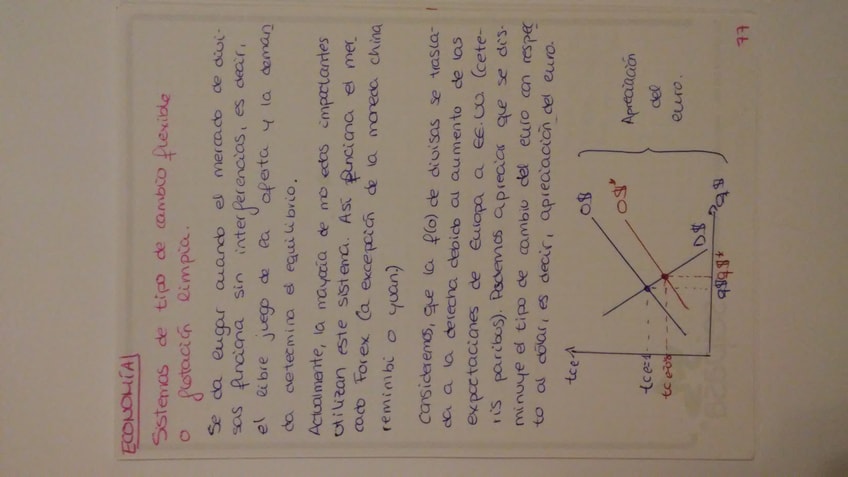 ECONOMÍA
Sistemas de tipo de cambio flexible
o flotación limpia.
Se da lugar cuando el mercado de divi-
sas funciona sin interferencias, es decir,
el libre juego de la oferta y la deman
da determina el equilibrio.
Actualmente, la mayoría de monedas importantes
utilizan este sistema. Así funciona el mer-
cado Forex (a excepción de la moneda china
reminibi o yuan)
Consideremos, que la f(o) de divisas se trasla-
da a la derecha debido al aumento de las
exportaciones de Europa a EE.UU (cete-
ris paribus). Podemos apreciar que se dis-
minuye el tipo de cambio del euro con respec
to al dólar, es decir, apreciación del euro.
tce
O$
O$*
D$
tce=1
q$ q$*
q$
Apreciación
del
euro.
77